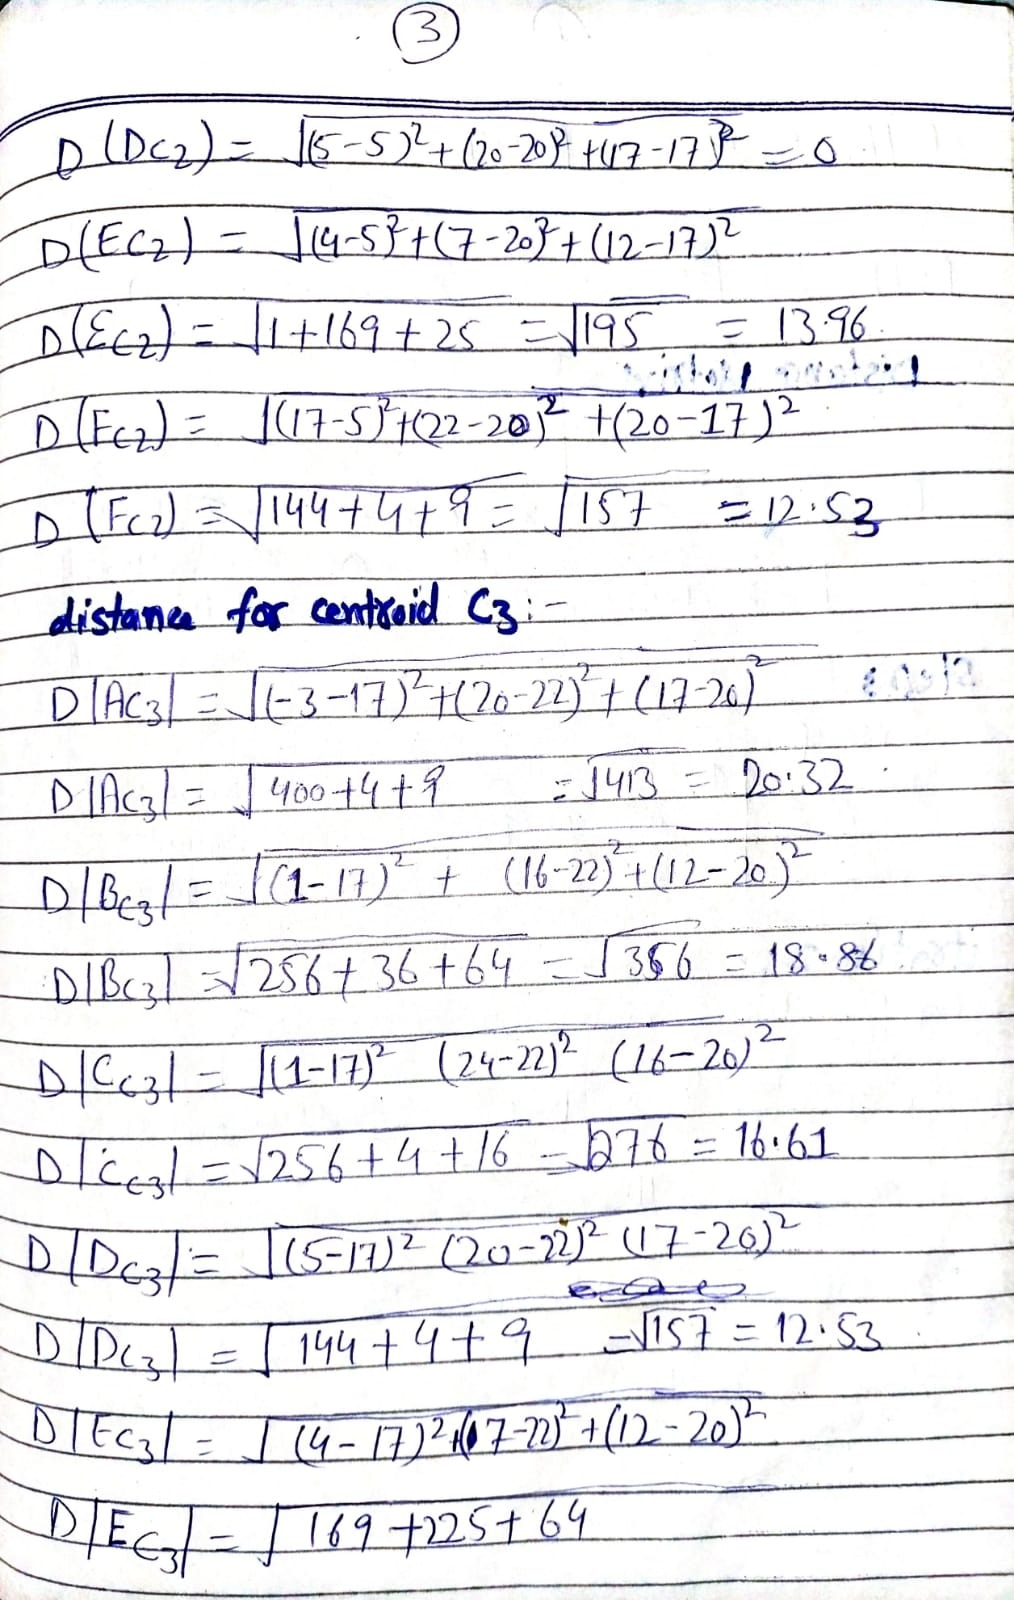 3
D(DC2) = √(5-5)² + (20-20)² + (17-17)² = 0
D(EC2) = √(4-5)² + (7-20)² + (12-17)²
D(EC2) = √1+169+25 = √195 = 13.96
D(FC2) = √(17-5)² + (22-20)² + (20-17)²
D(FC2) = √144+4+9 = √157 = 12.53
distance for centroid C3:-
D|AC3| = √(-3-17)² + (20-22)² + (17-20)²
D|AC3| = √400+4+9 = √413 = 20.32
D|BC3| = √(1-17)² + (16-22)² + (12-20)²
D|BC3| = √256+36+64 = √356 = 18.86
D|CC3| = √(1-17)² (24-22)² (16-20)²
D|CC3| = √256+4+16 = √276 = 16.61
D|DC3| = √(5-17)² (20-22)² (17-20)²
D|DC3| = √144+4+9 = √157 = 12.53
D|EC3| = √(4-17)² + (7-22)² + (12-20)²
D|EC3| = √169+225+64